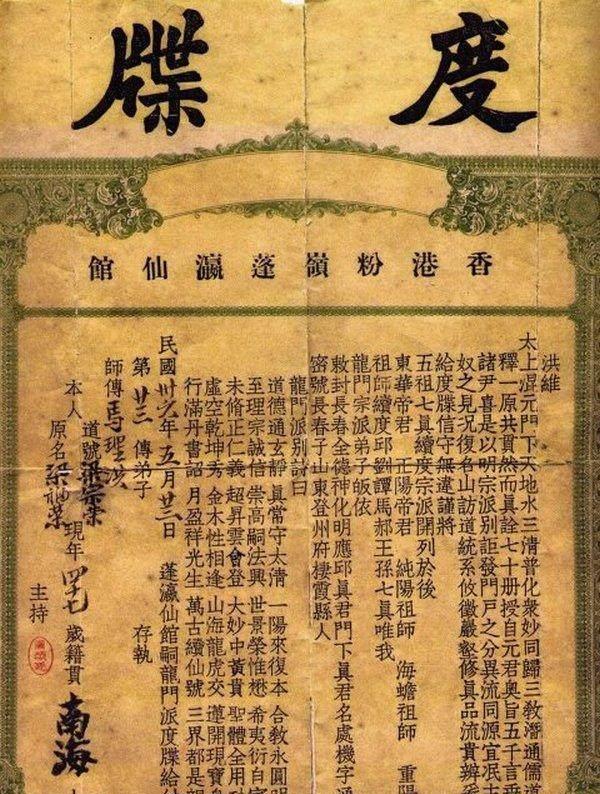 度牒
香港粉嶺蓬瀛仙館
洪維
太上混元門下天地水三清普化衆妙同歸三敎潛通儒道
釋一原共貫然而眞詮七十册授自元君奧旨五千言垂
諸尹喜是以明宗派別詎發門戶之分異流同源宜泯主
奴之見況復名山訪道統系攸徵嚴壑修眞品流貴辨
給度牒信守無違謹將
五祖七眞續度宗派開列於後
東華帝君 正陽帝君 純陽祖師 海蟾祖師 重陽
祖師續度邱劉譚馬郝王孫七眞唯我
龍門宗派弟子皈依
敕封長春全德神化明應邱眞君門下眞君名處機字通
密號長春子山東登州府棲霞縣人
龍門派別詩曰
道德通玄靜 眞常守太清 一陽來復本 合敎永圓明
至理宗誠信 崇高嗣法興 世景榮惟懋 希夷衍自
未脩正仁義 超昇雲會登 大妙中黃貴 聖體全用
虛空乾坤秀 金木性相逢 山海龍虎交 蓮開現寶
行滿丹書詔 月盈祥光生 萬古續仙號 三界都是
民國卅六年五月廿二日 蓬瀛仙館嗣龍門派度牒給
第廿三傳弟子 存執
師傳馬聖
道號梁宗榮
本人 現年四十七歲籍貫南海
原名梁福榮
主持